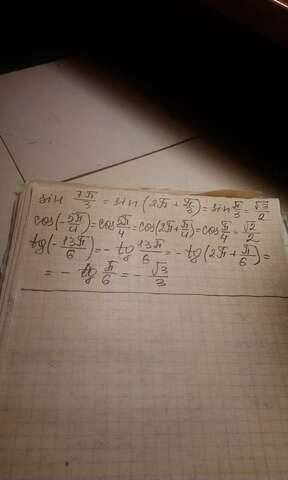 sin 7π/3 = sin (2π + π/3) = sin π/3 = √3/2
cos(-5π/4) = cos 5π/4 = cos(2π + π/4) = cos π/4 = √2/2
tg(-13π/6) = - tg 13π/6 = - tg (2π + π/6) =
= - tg π/6 = - √3/3